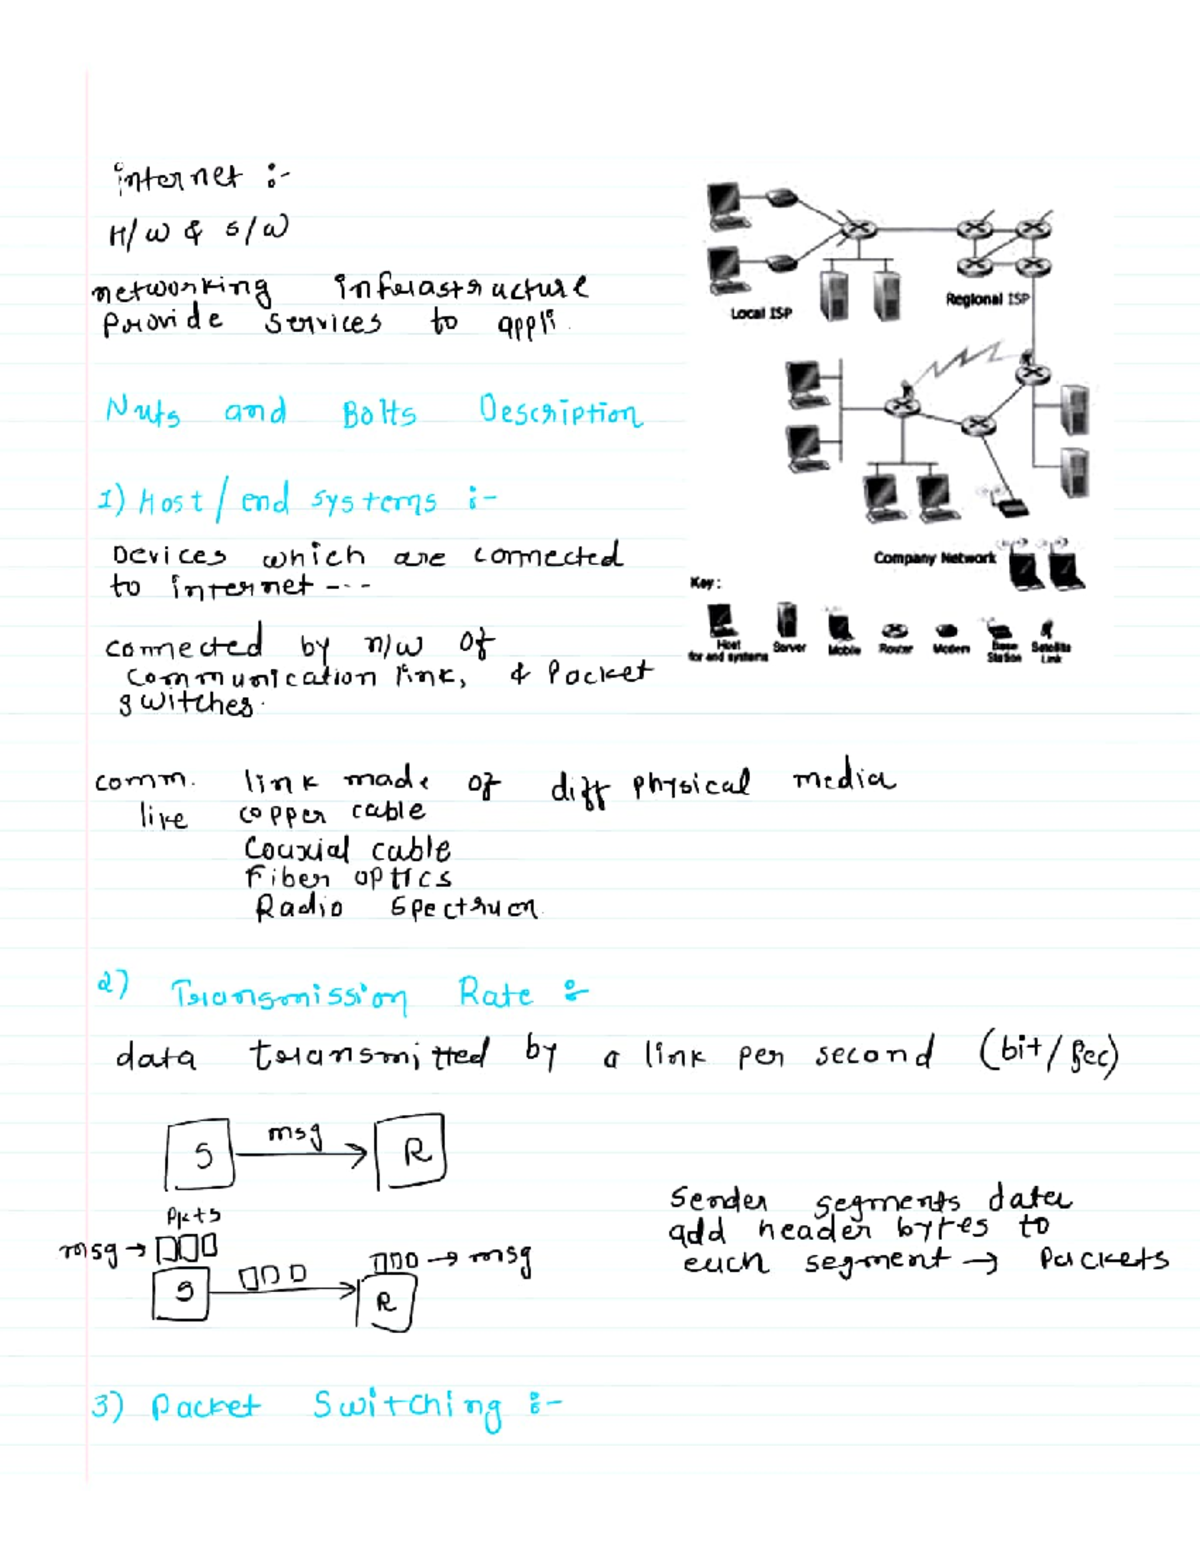 internet :-
H/W & S/W
networking infrastructure
provide services to appli.
Nuts and Bolts Description
1) Host/end systems :-
Devices which are connected
to internet ---
connected by n/w of
communication link, & Packet
switches.
comm. link made of diff physical media
like copper cable
Coaxial cable
Fiber optics
Radio Spectrum
2) Transmission Rate :-
data transmitted by a link per second (bit/sec)
S msg R
Pkts
msg → → msg
S R
Sender segments data
add header bytes to
each segment → Packets
3) Packet Switching :-
Local ISP
Regional ISP
Company Network
Key:
Host
for end systems
Server
Mobile
Router
Modem
Base
Station
Satellite
Link